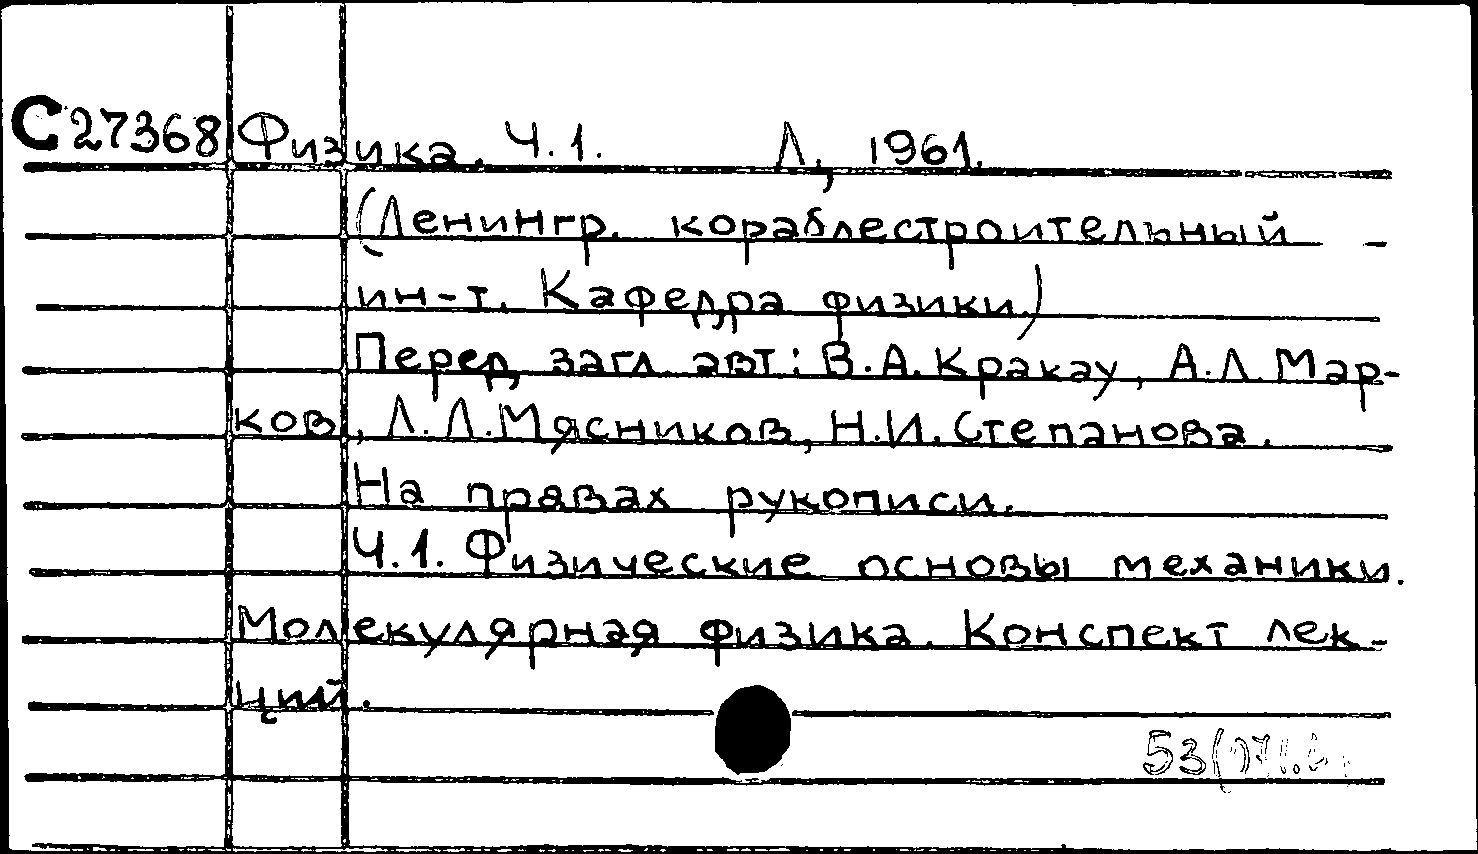 С27368 Физика. Ч.1. Л., 1961.
(Ленингр. кораблестроительный
ин-т. Кафедра физики.)
Перед загл. авт: В.А. Кракау, А.Л. Мар-
ков, Л.Л. Мясников, Н.И. Степанова.
На правах рукописи.
Ч.1. Физические основы механики.
Молекулярная физика. Конспект лек-
ций.